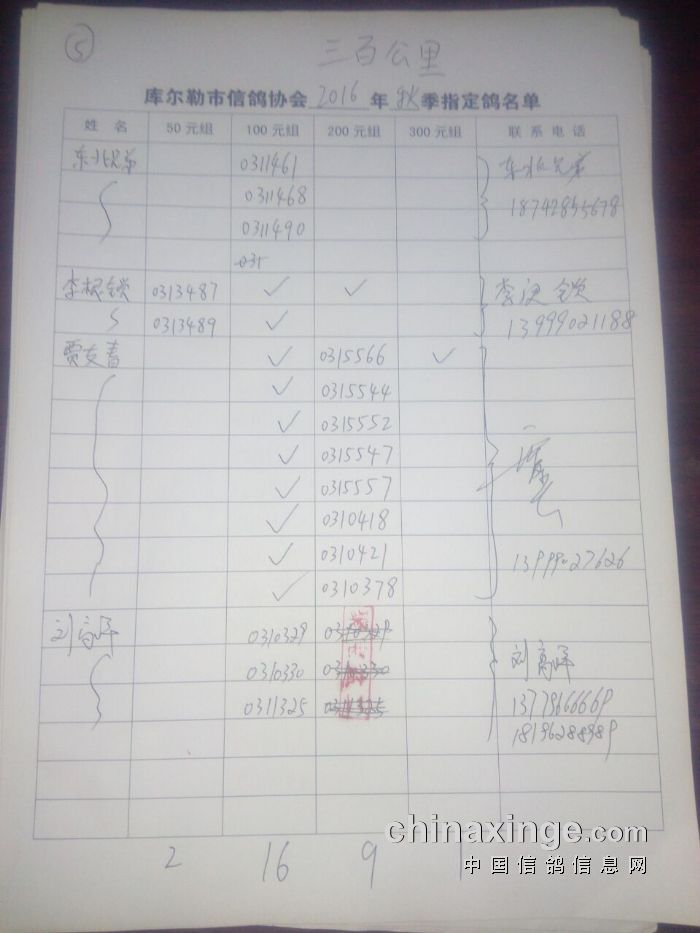 ⑤
三百公里
库尔勒市信鸽协会 2016 年 秋 季指定鸽名单
姓 名 50元组 100元组 200元组 300元组 联系电话
东北兄弟 0311461 东北兄弟
0311468 18742855678
0311490
035
李根锁 0313487 ✓ ✓ 李根锁
0313489 ✓ 13999021188
贾友春 ✓ 0315566 ✓
✓ 0315544
✓ 0315552
✓ 0315547
✓ 0315557
✓ 0310418
✓ 0310421 13999027626
✓ 0310378
刘高峰 0310329 0310329 刘高峰
0310330 0310330
0311325 0311325 13779666669
18196288989
2 16 9 1
chinaxinge.com
中国信鸽信息网